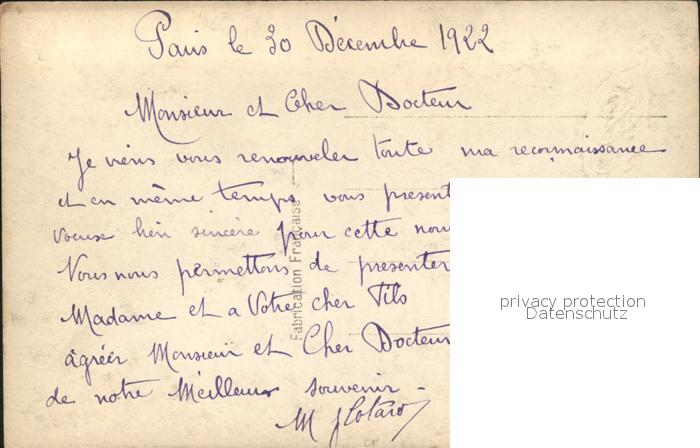 Paris le 30 Décembre 1922
Monsieur et Cher Docteur
Je viens vous renouveler toute ma reconnaissance
et en même temps vous present
voeux bien sincère pour cette nou
Nous nous permettons de presenter
Madame et a Votre cher Fils
agréer Monsieur et Cher Docteur
de notre Meilleur souvenir -
M
Fabrication Française
privacy protection
Datenschutz